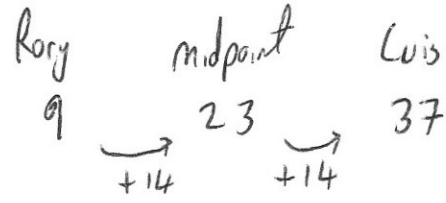 Rory midpoint Luis
9 23 37
+14 +14